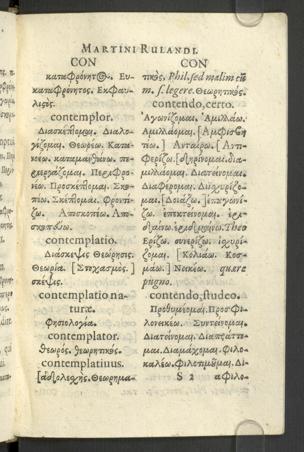 MARTINI RULANDI.
CON
καταφρόνητος. Ευ-
καταφρόνητος. Εκφαυ-
λισός.
contemplor.
Διασκέπτομαι. Διαλο-
γίζομαι. Θεωρέω. Κατα-
νοέω. καταμανθάνω. πε-
ριεργάζομαι. Περιφρο-
νέω. Προσκέπτομαι. Σκο-
πέω. Σκέπτομαι. Φροντί-
ζω. Αποσκοπέω. Απο-
σκοπεύω.
contemplatio.
Διάσκεψις Θεώρησις.
Θεωρία. [Στοχασμός.]
σκέψις.
contemplatio na-
turæ.
Φυσιολογία.
contemplator.
θεωρός. θεωρητικός.
contemplatiuus.
Θεωρημα-
CON
τικὸς. Phil. sed malim cũ
m. s. legere. Θεωρητικὸς.
contendo, certo.
Ἀγωνίζομαι. Ἀμιλλάω.
Αμιλλάομαι. [Αμφισβη-
τέω.] Ανταίρω. [Αντι-
φερίζω. δηρίνομαι. δια-
μιλλάομαι. Διατείνομαι.
Διαφέρομαι. Διϊσχυρίζο-
μαι. [Δοιάζω. ἐπαγωνί-
ζω. ἐπεκτείνομαι.
Theo
Ερίζω. συνερίζω. ἰσχυρί-
ζομαι. [Κολιάω. Κοσ-
μάω.] Νεικέω. quære
pugno.
contendo, studeo.
Προθυμέομαι. Προσφι-
λονεικέω. Συντείνομαι.
Διατείνομαι. Διαπάττο-
μαι. Διαμάχομαι. Φιλο-
καλέω. Φιλοτιμοῦμαι. Δι-
S 2 αφιλο-